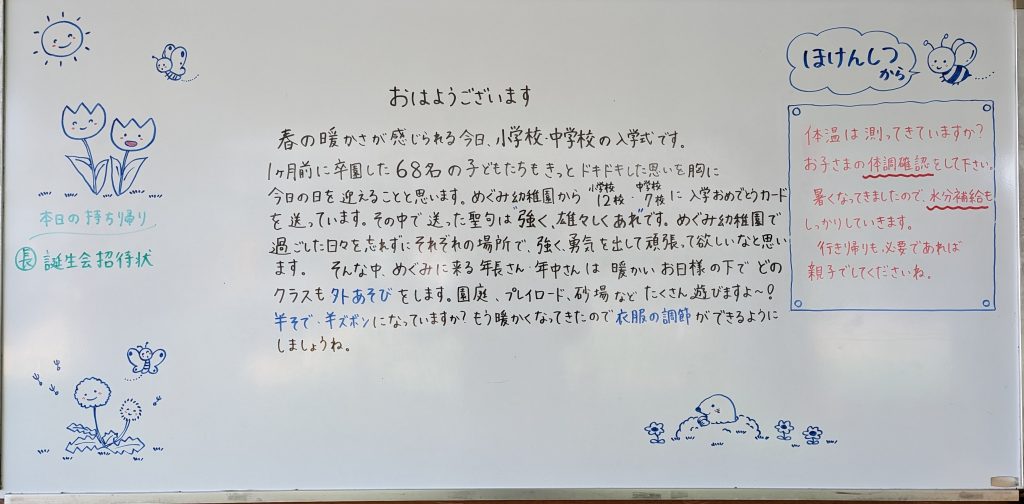 おはようございます
春の暖かさが感じられる今日、小学校・中学校の入学式です。
1ヶ月前に卒園した68名の子どもたちもきっとドキドキした思いを胸に
今日の日を迎えることと思います。めぐみ幼稚園から小学校12校・中学校7校に入学おめでとうカード
を送っています。その中で送った聖句は"強く、雄々しくあれ"です。めぐみ幼稚園で
過ごした日々を忘れずにそれぞれの場所で、強く、勇気を出して頑張って欲しいなと思い
ます。 そんな中、めぐみに来る年長さん・年中さんは暖かいお日様の下でどの
クラスも外あそびをします。園庭、プレイロード、砂場などたくさん遊びますよ〜♪
半そで・半ズボンになっていますか?もう暖かくなってきたので衣服の調節ができるように
しましょうね。
本日の持ち帰り
長 誕生会招待状
ほけんしつ
から
体温は測ってきていますか?
お子さまの体調確認をして下さい。
暑くなってきましたので、水分補給も
しっかりしていきます。
行き帰りも必要であれば
親子でしてくださいね。